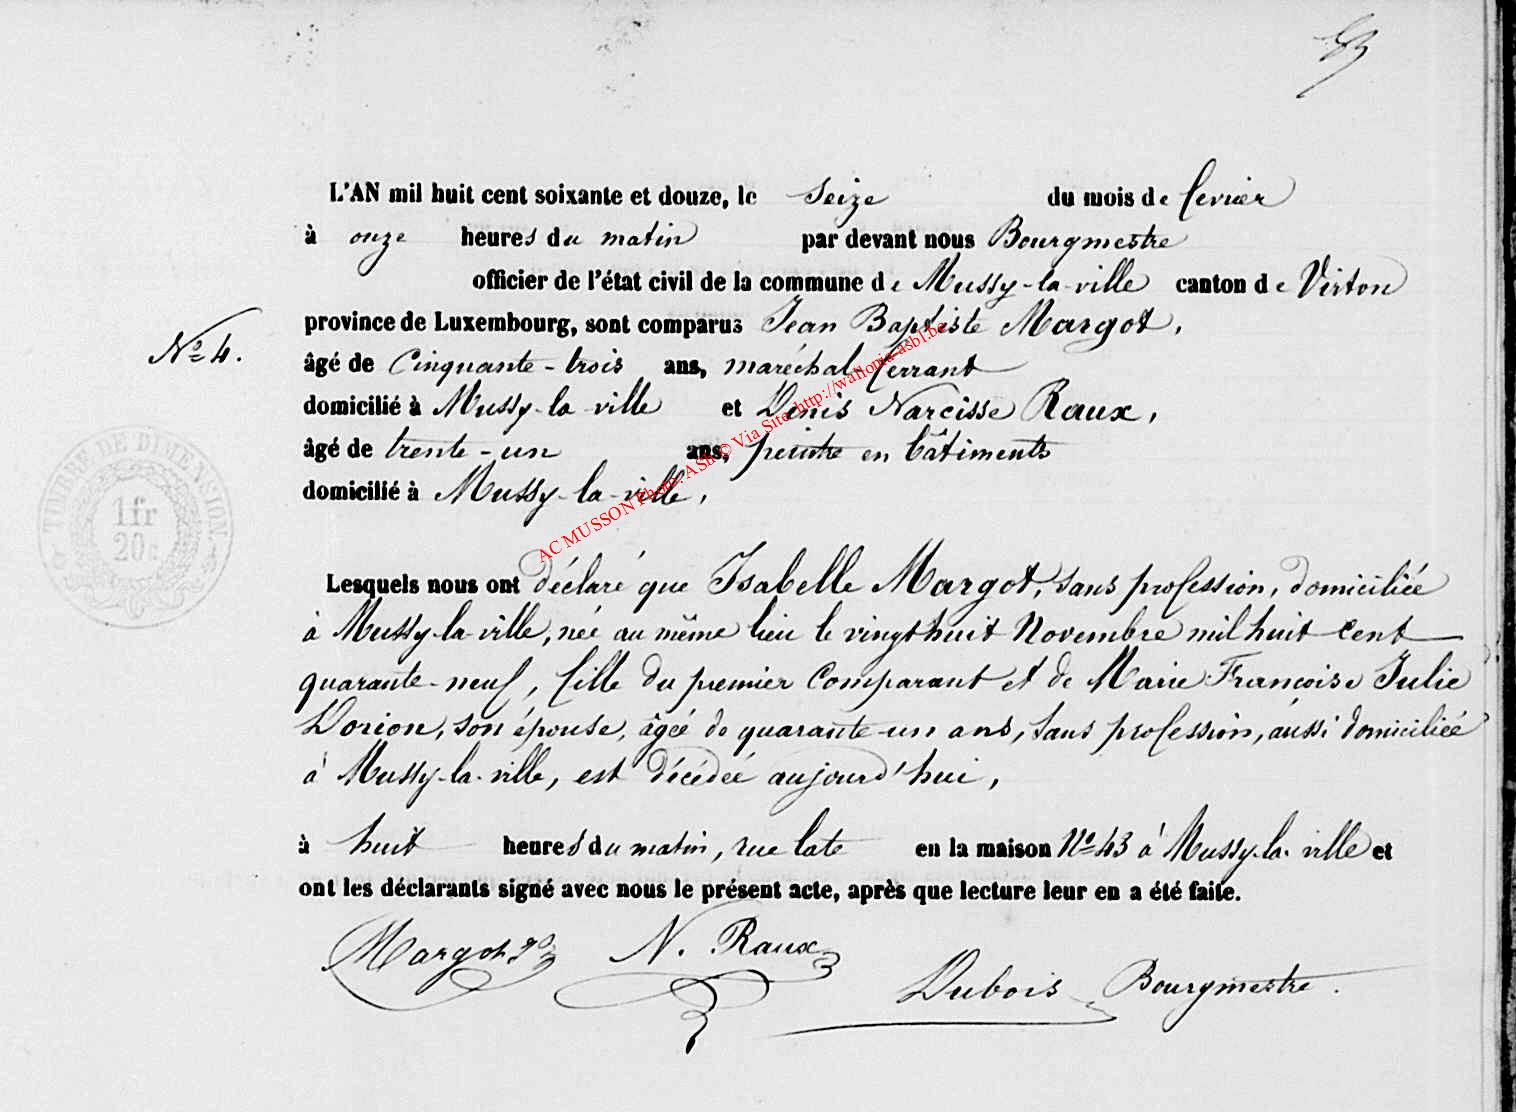 L'AN mil huit cent soixante et douze, le seize du mois de fevrier
à onze heures du matin par devant nous Bourgmestre
officier de l'état civil de la commune de Mussy-la-ville canton de Virton
province de Luxembourg, sont comparus Jean Baptiste Margot,
N° 4.
âgé de Cinquante-trois ans, maréchal-ferrant
domicilié à Mussy-la-ville et Dénis Narcisse Raux,
âgé de trente-un ans, peintre en bâtiments
domicilié à Mussy-la-ville,
AC MUSSON Photo: ASBL © Via Site: http://wallonia-asbl.be
TIMBRE DE DIMENSION
1 fr
20 c
Lesquels nous ont déclaré que Isabelle Margot, sans profession, domiciliée
à Mussy-la-ville, née au même lieu le vingt huit Novembre mil huit cent
quarante-neuf, fille du premier Comparant et de Marie Françoise Julie
Dorion, son épouse, âgée de quarante-un ans, sans profession, aussi domiciliée
à Mussy-la-ville, est décédée aujourd'hui,
à huit heures du matin, rue late en la maison N° 43 à Mussy-la-ville et
ont les déclarants signé avec nous le présent acte, après que lecture leur en a été faite.
Margot N. Raux
Dubois Bourgmestre.